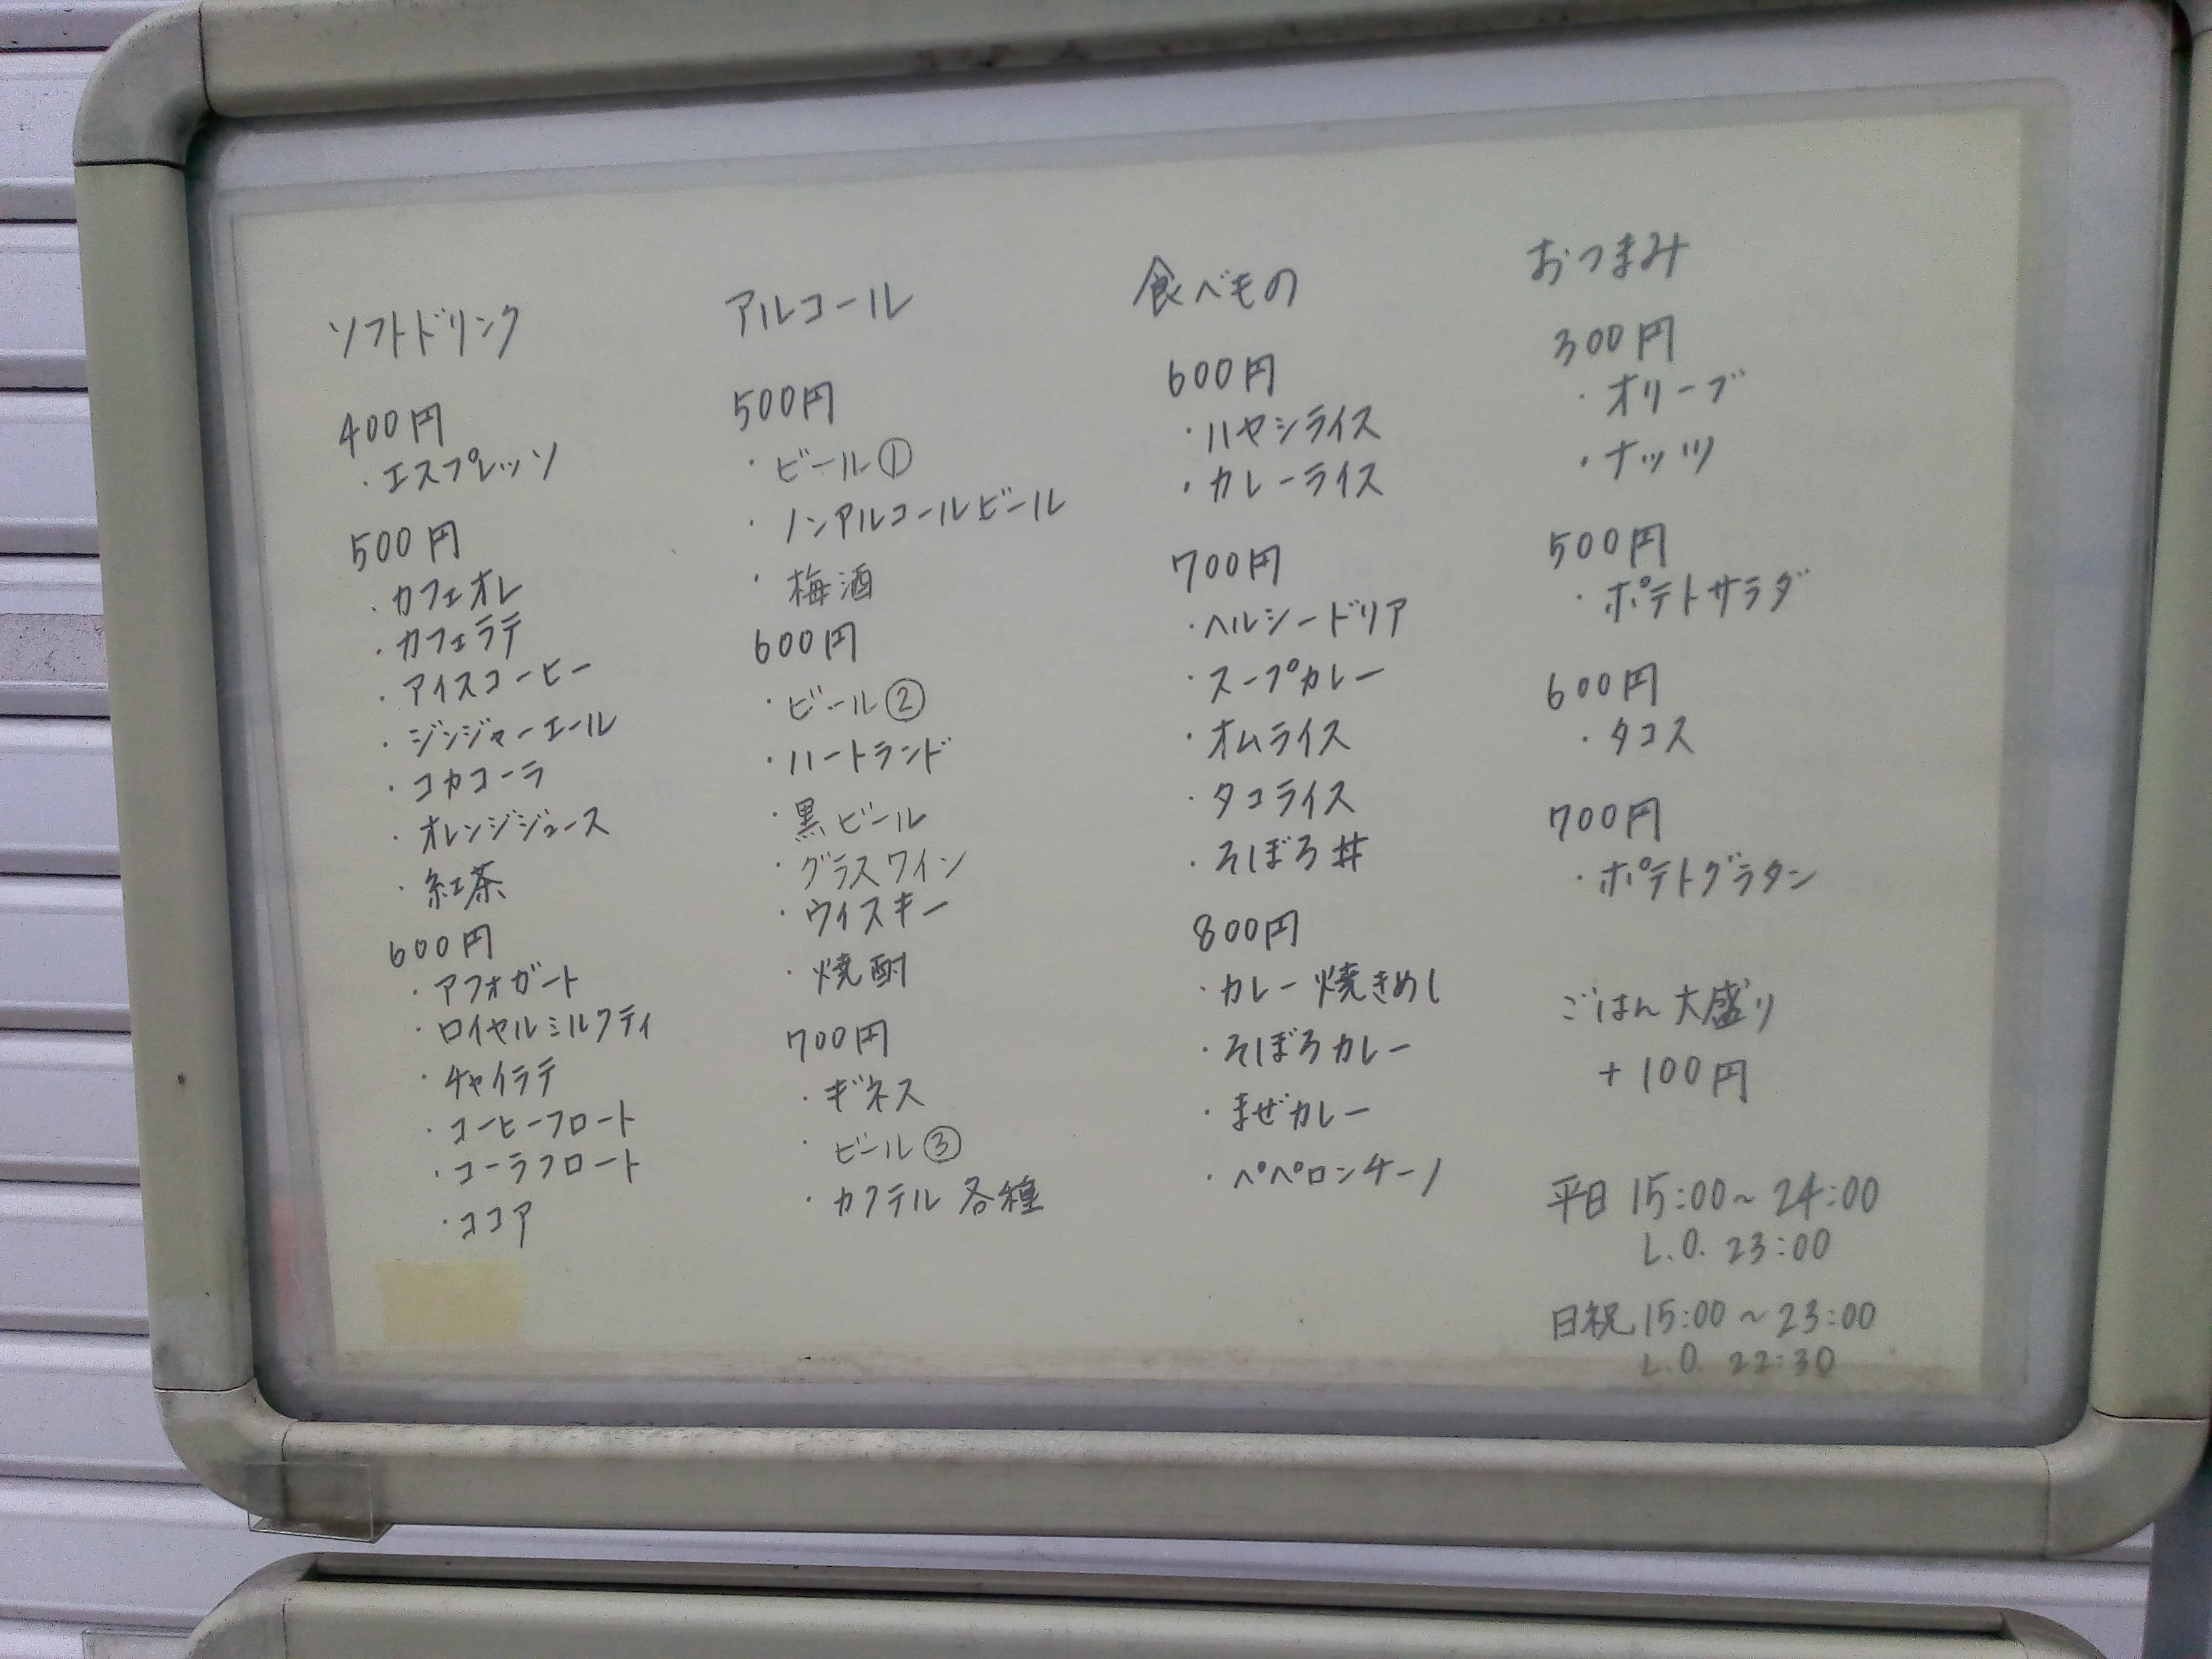 ソフトドリンク
400円
・エスプレッソ
500円
・カフェオレ
・カフェラテ
・アイスコーヒー
・ジンジャーエール
・コカコーラ
・オレンジジュース
・紅茶
600円
・アフォガート
・ロイヤルミルクティ
・チャイラテ
・コーヒーフロート
・コーラフロート
・ココア
アルコール
500円
・ビール①
・ノンアルコールビール
・梅酒
600円
・ビール②
・ハートランド
・黒ビール
・グラスワイン
・ウイスキー
・焼酎
700円
・ギネス
・ビール③
・カクテル各種
食べもの
600円
・ハヤシライス
・カレーライス
700円
・ヘルシードリア
・スープカレー
・オムライス
・タコライス
・そぼろ丼
800円
・カレー焼きめし
・そぼろカレー
・まぜカレー
・ペペロンチーノ
おつまみ
300円
・オリーブ
・ナッツ
500円
・ポテトサラダ
600円
・タコス
700円
・ポテトグラタン
ごはん大盛り
+100円
平日 15:00~24:00
L.O. 23:00
日祝 15:00~23:00
L.O. 22:30